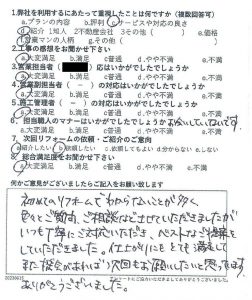 1.弊社を利用するにあたって重視したことは何ですか(複数回答可)
a.プランの内容 b.評判 c.サービスや対応の良さ
d.紹介 1知人 2不動産会社 3その他( ) e.価格
f.営業マンの人柄 g.その他( )
2.工事の感想をお聞かせ下さい
a.大変満足 b.満足 c普通 d.やや不満 e.不満
3.営業担当者( )の対応はいかがでしたでしょうか
a.大変満足 b.満足 c普通 d.やや不満 e.不満
4.営業副担当者( - )の対応はいかがでしたでしょうか
a.大変満足 b.満足 c普通 d.やや不満 e.不満
5.施工管理者( - )の対応はいかがでしたでしょうか
a.大変満足 b.満足 c普通 d.やや不満 e.不満
6.担当職人のマナーはいかがでしたでしょうか
a.大変満足 b.満足 c普通 d.やや不満 e.不満
7.次回リフォームの依頼・ご紹介のご意向
a紹介したい b依頼したい c.依頼してもよい d分からない e.しない
8.総合満足度をお聞かせ下さい
a.大変満足 b.満足 c普通 d.やや不満 e.不満
何かご意見がございましたらご記入をお願い致します
初めてのリフォームでわからないことが多く、
色々とご相談などさせていただきましたが
いつも丁寧にご対応いただき、ベストな
していただきました。仕上がりにもとても満足して
また機会があれば次回もお願いしたいと思ってます。
ありがとうございました。
20230615